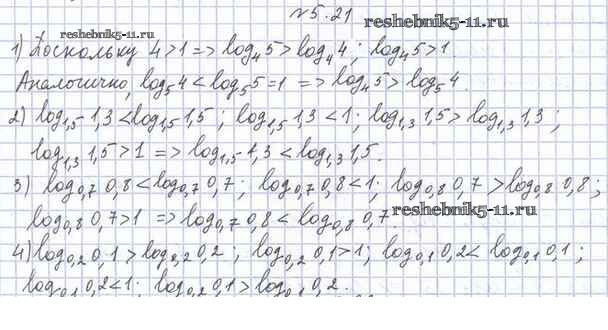 №5.21
reshebnik5-11.ru
1) Поскольку 4>1 => log₄5>log₄4; log₄5>1.
Аналогично, log₅4<log₅5=1 => log₄5>log₅4.
2) log₁,₅1,3<log₁,₅1,5; log₁,₅1,3<1; log₁,₃1,5>log₁,₃1,3;
log₁,₃1,5>1 => log₁,₅1,3<log₁,₃1,5.
3) log₀,₇0,8<log₀,₇0,7; log₀,₇0,8<1; log₀,₈0,7>log₀,₈0,8;
log₀,₈0,7>1 => log₀,₇0,8<log₀,₈0,7
reshebnik5-11.ru
4) log₀,₂0,1>log₀,₂0,2; log₀,₂0,1>1; log₀,₁0,2<log₀,₁0,1;
log₀,₁0,2<1; log₀,₂0,1>log₀,₁0,2.